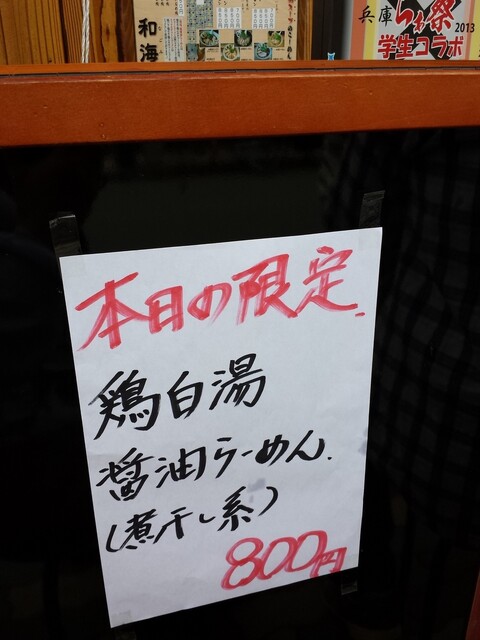 和海
兵庫
らぁ祭
2013
学生コラボ
本日の限定.
鶏白湯
醤油らーめん.
(煮干し系)
800円